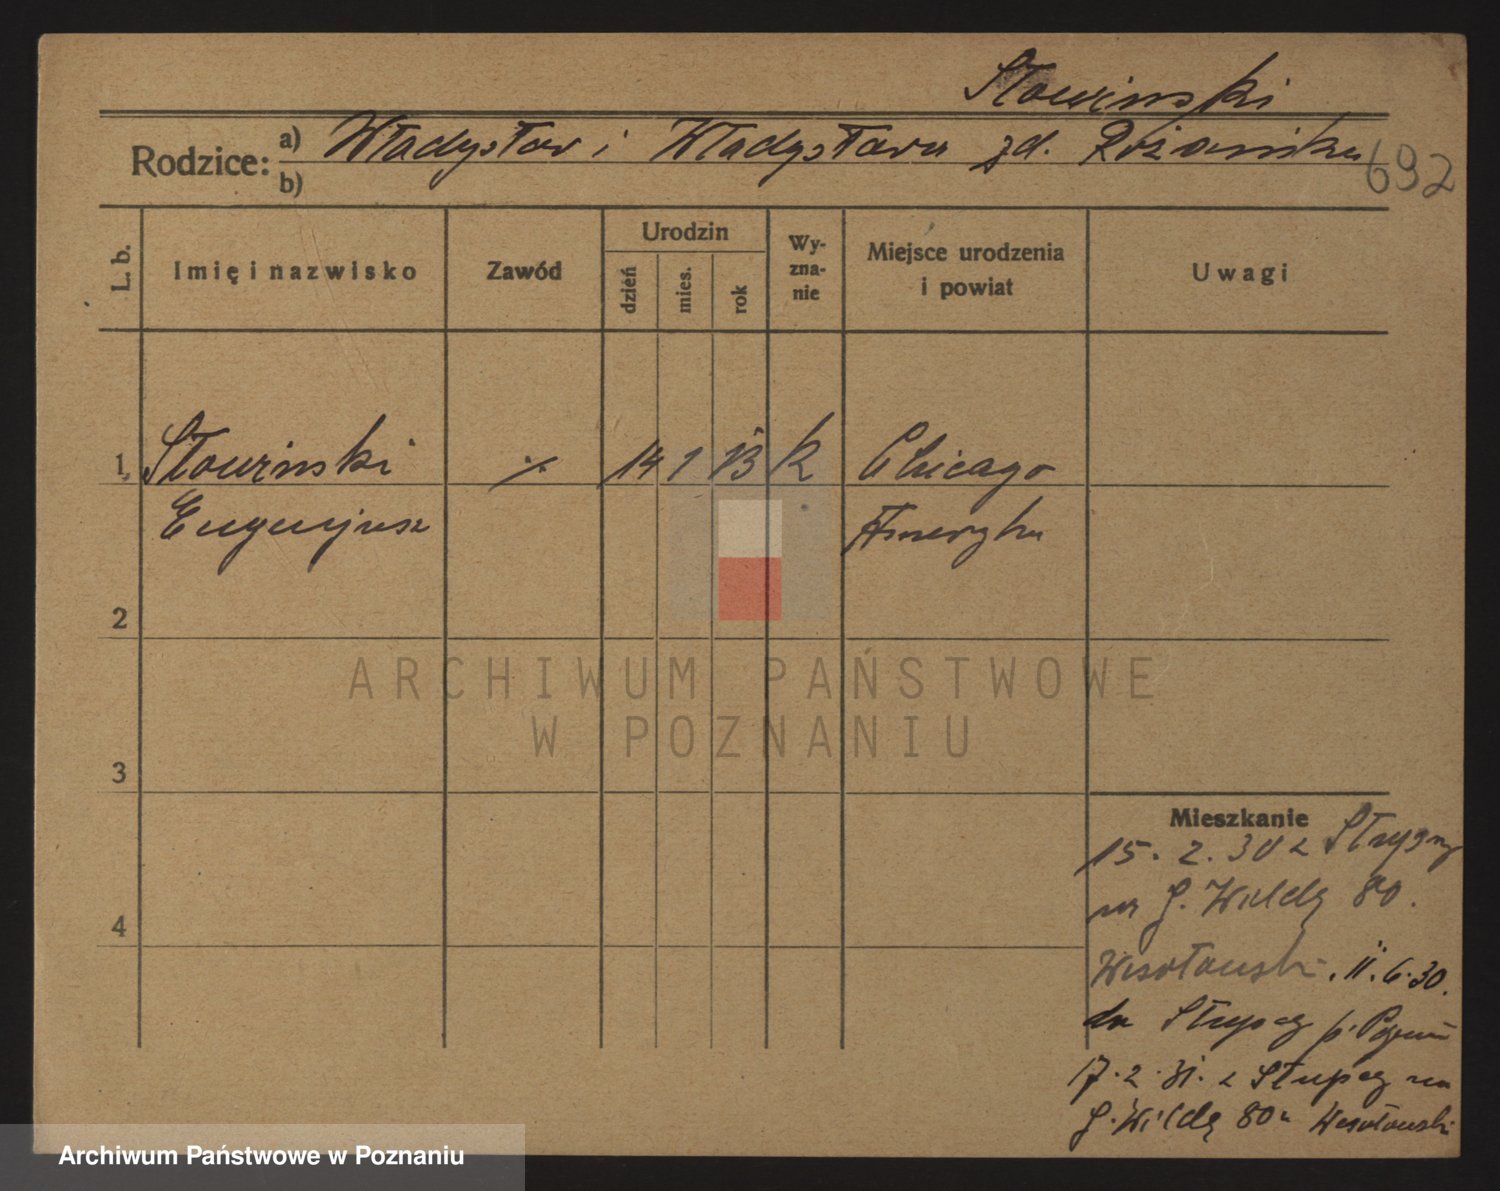 Słowinski
Rodzice: a) Władysław i Władysława zd. Różańska
b)
692
L. b. Imię i nazwisko Zawód Urodzin dzień mies. rok Wyznanie Miejsce urodzenia i powiat Uwagi
1 Słowinski 14 1 13 k Chicago
Eugenjusz Ameryka
2
3
4
Mieszkanie
15. 2. 30 z
na G. Wildę 80.
Wesołowski. 11. 6. 30.
do Słupcy p.
17. 2. 31. z Słupcy na
G. Wildę 80 u Wesołowski
ARCHIWUM PAŃSTWOWE
W POZNANIU
Archiwum Państwowe w Poznaniu